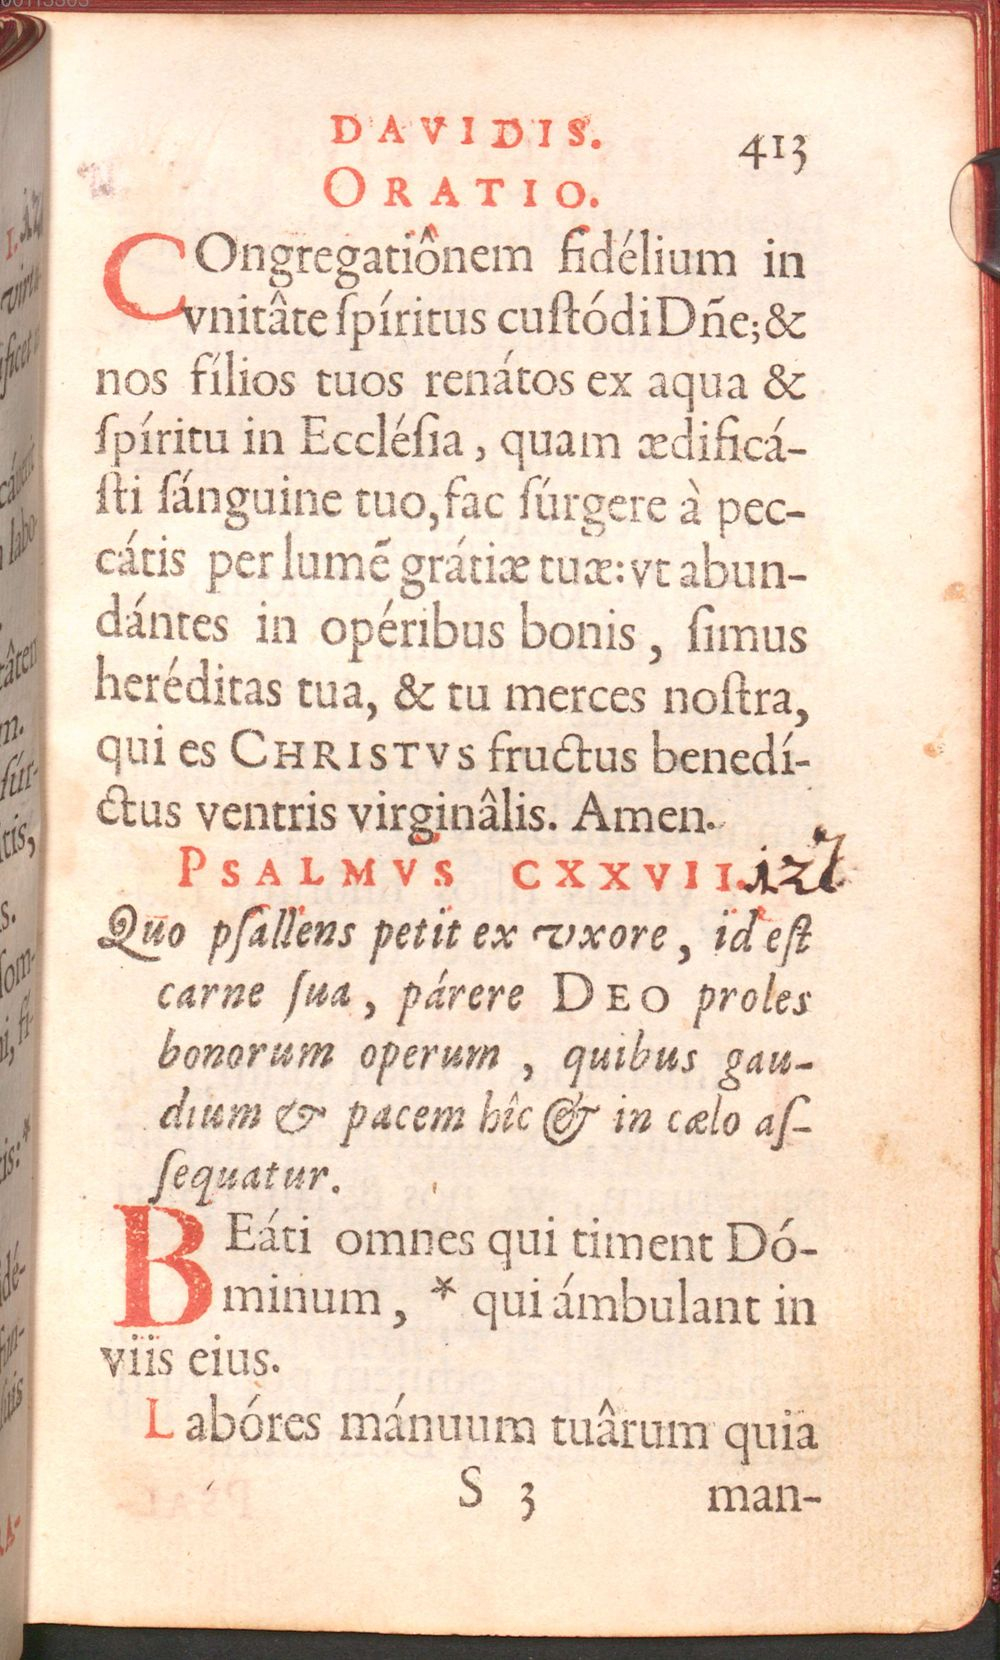 DAVIDIS. 413
ORATIO.
COngregatiônem fidélium in
vnitâte ſpíritus cuſtódi Dñe; &
nos fílios tuos renátos ex aqua &
ſpíritu in Eccléſia, quam ædificá-
ſti ſánguine tuo, fac ſúrgere à pec-
cátis per lumē grátiæ tuæ: vt abun-
dántes in opéribus bonis, ſimus
heréditas tua, & tu merces noſtra,
qui es CHRISTVS fructus benedí-
ctus ventris virginâlis. Amen.
PSALMVS CXXVII. 127
Quo pſallens petit ex vxore, id eſt
carne ſua, párere DEO proles
bonorum operum, quibus gau-
dium & pacem hîc & in cælo aſ-
ſequatur.
BEáti omnes qui timent Dó-
minum, * qui ámbulant in
viis eius.
Labóres mánuum tuârum quia
S 3 man-